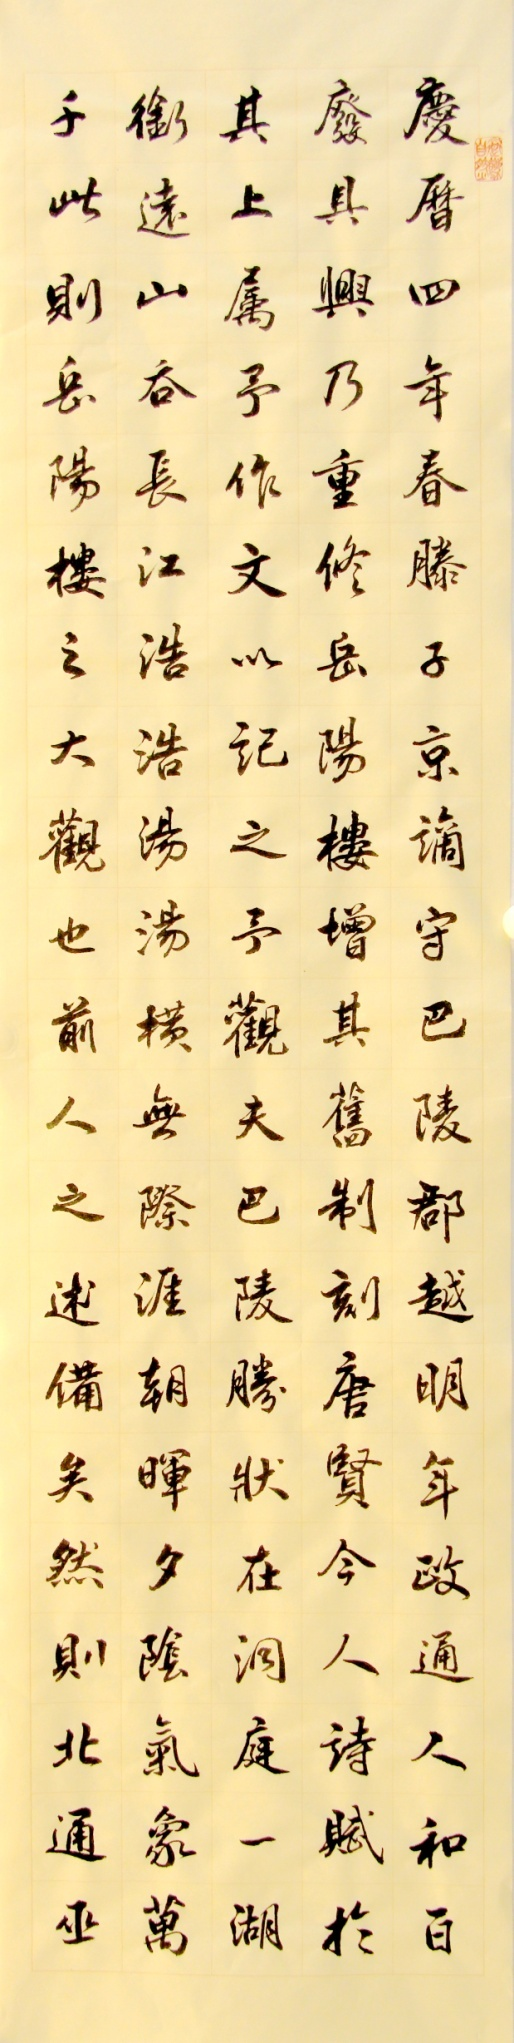 慶曆四年春滕子京謫守巴陵郡越明年政通人和百
廢具興乃重修岳陽樓增其舊制刻唐賢今人詩賦於
其上屬予作文以記之予觀夫巴陵勝狀在洞庭一湖
銜遠山吞長江浩浩湯湯橫無際涯朝暉夕陰氣象萬
千此則岳陽樓之大觀也前人之述備矣然則北通巫